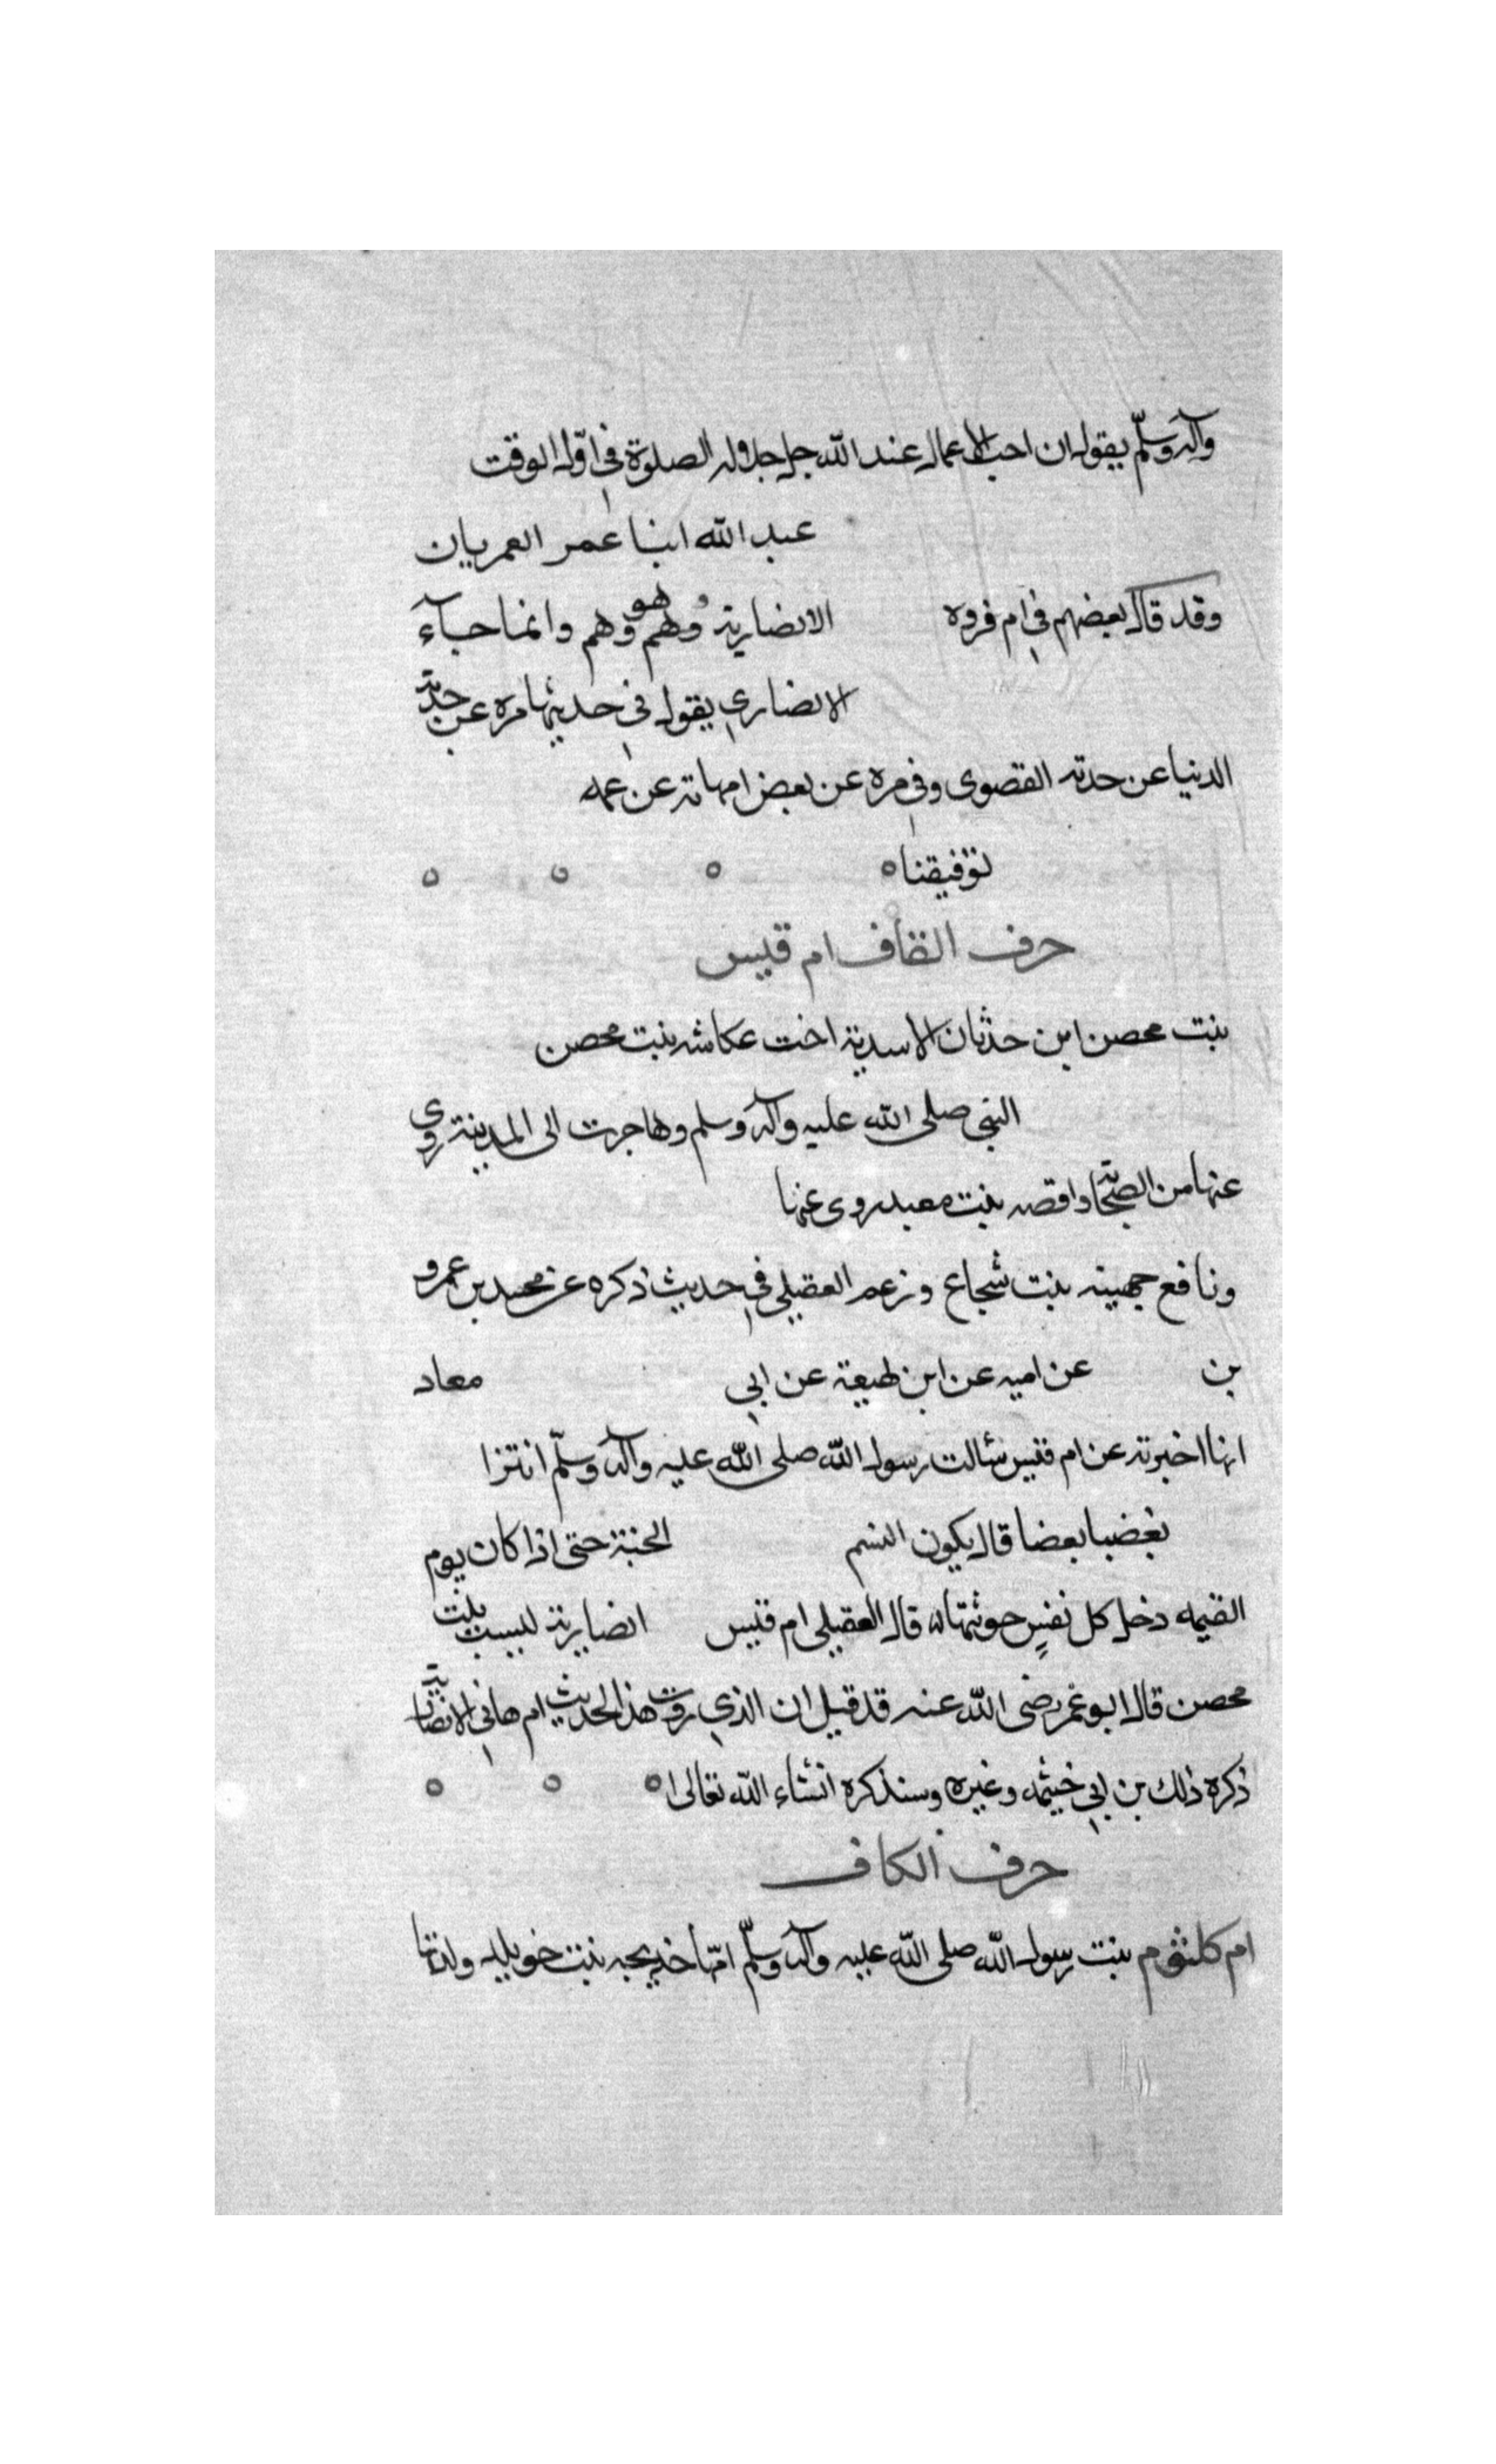 وآله وسلّم يقول ان احب الاعمال عند الله جل جلاله الصلوة في اوّل الوقت
عبد الله ابنا عمر العمريان
وقد قال بعضهم في ام فروه الانضارية وهم هو وهم وانما جاء
الانضاري يقول في حديثها مره عن جدته
الدنيا عن جدته القصوى وفي مره عن بعض امهاته عن عمه
توفيقنا ه ه ه ه
حرف القاف ام قيس
بنت محصن ابن حدثان الاسدية اخت عكاشه بنت محصن
النبي صلى الله عليه وآله وسلم وهاجرت الى المدينة روى
عنها من الصحابة واقصه بنت معبد روى عنها
ونافع جهينه بنت شجاع وزعم العقيلي في حديث ذكره عن محمد بن عمرو
بن عن اميه عن ابن لهيعة عن ابي معاد
انها اخبرته عن ام قيس سئالت رسول الله صلى الله عليه وآله وسلّم انتزا
بغضبا بعضا قال يكون النسم الجنة حتى اذا كان يوم
القيمه دخل كل نفسٍ جوثتها قال العقيلي ام قيس انضارية ليست بنت
محصن قال ابو عمر رضى الله عنه قد قيل ان الذي روت هذا الحديث ام هاني الانضارية
ذكره ذلك بن ابي خيثمه وغيره وسنذكره انشاء الله تعالى ه ه ه
حرف الكاف
ام كلثوم بنت رسول الله صلى الله عليه وآله وسلّم امّها خديجه بنت خويلد ولدتها